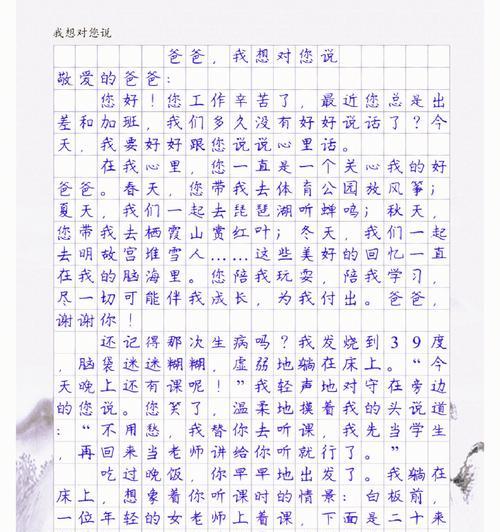 我想对您说
爸爸，我想对您说
敬爱的爸爸：
您好！您工作辛苦了，最近您总是出
差和加班，我们多久没有好好说话了？今
天，我要好好跟您说说心里话。
在我心里，您一直是一个关心我的好
爸爸。春天，您带我去体育公园放风筝；
夏天，我们一起去琵琶湖听蝉鸣；秋天，
您带我去栖霞山赏红叶；冬天，我们一起
去明故宫堆雪人……这些美好的回忆一直
在我的脑海里。您陪我玩耍，陪我学习，
尽一切可能伴我成长，为我付出。爸爸，
谢谢你！
还记得那次生病吗？我发烧到39度
，脑袋迷迷糊糊，虚弱地躺在床上。“今
天晚上还有课呢！”我轻声地对守在旁边
的您说。您笑了，温柔地摸着我的头说道
：“不用愁，我替你去听课，我先当学生
，再回来当老师讲给你听就行了。”
吃过晚饭，你早早地出发了。我躺在
床上，想象着你听课时的情景：白板前，
一位年轻的女老师上着课，下面是二十来